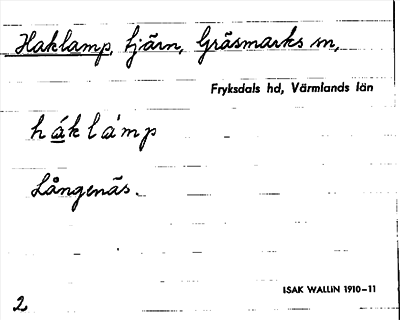 Haklamp, tjärn, Gräsmarks sn,
Fryksdals hd, Värmlands län
háklámp
Långenäs.
ISAK WALLIN 1910-11
2